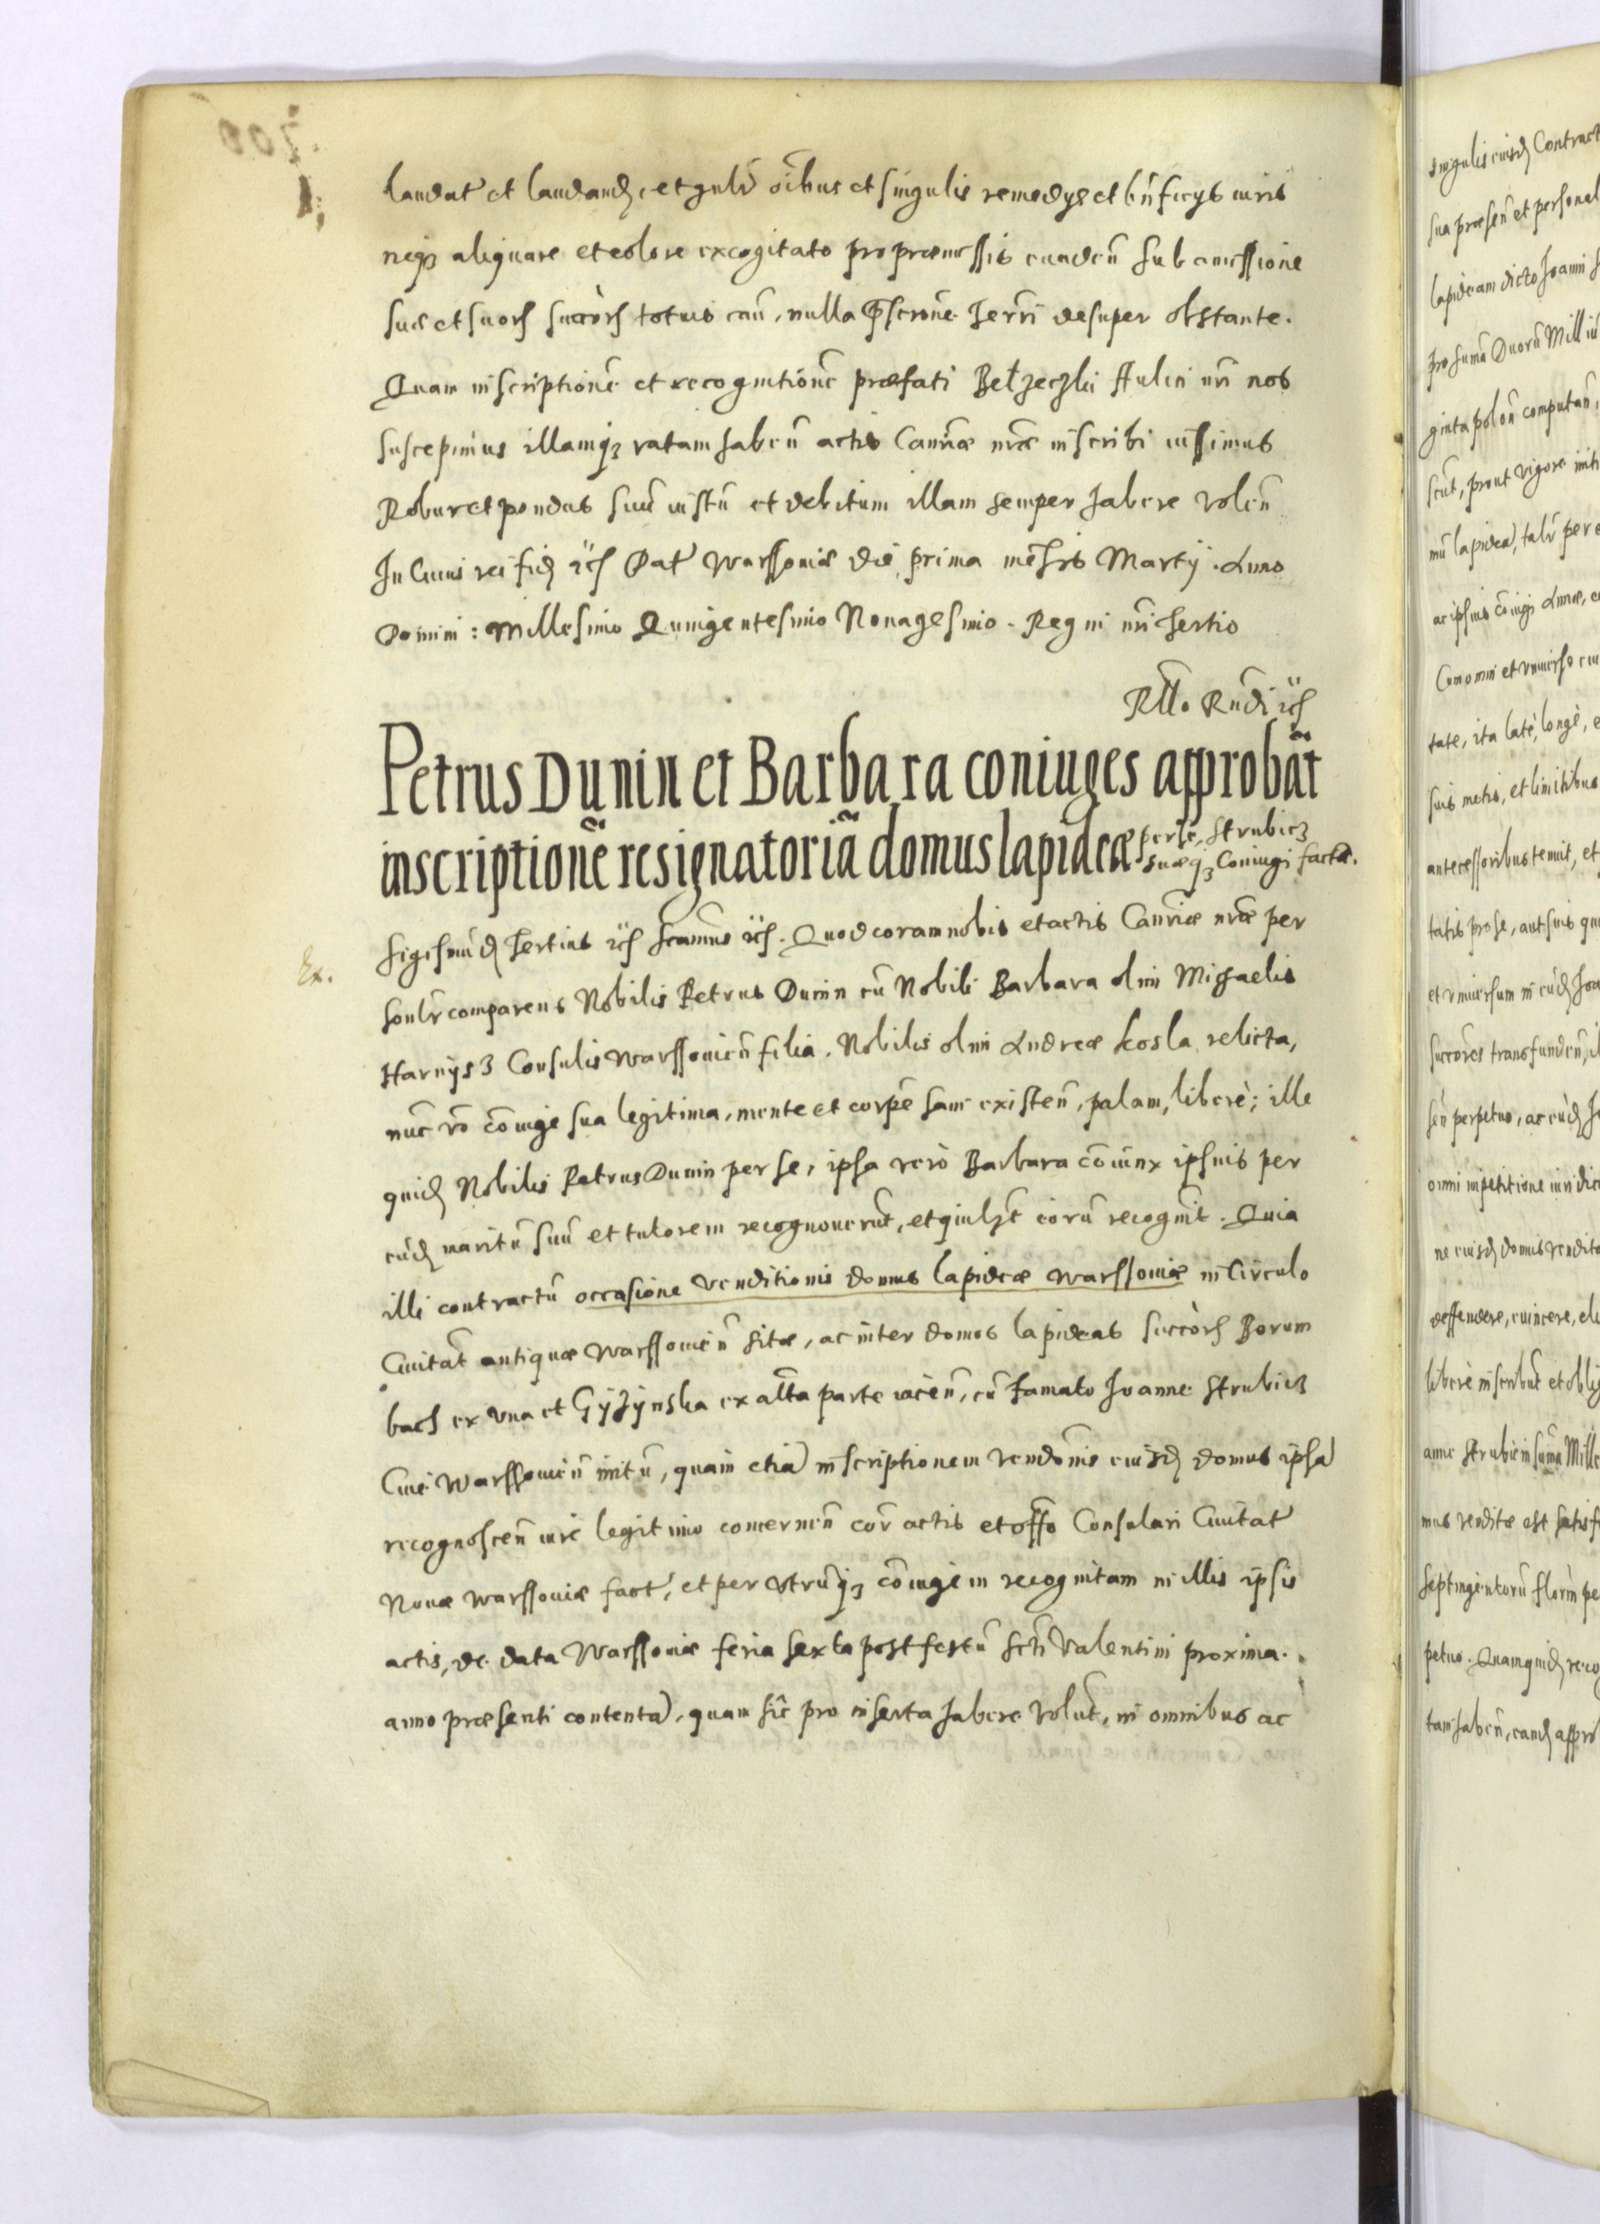 laudat et laudand, et gnlr oibus et singulis remedys et bnficys iuris
neq3 aliquare et colore excogitato pro praemissis euadeñ sub amissione
suæ et suorum succorum totius cau, nulla pscrone Terri desuper obstante.
Quam inscriptione et recognitione præfati Bełzeczki Aulici nri nos
suscepimus illamq3 ratam habeñ actis Canriæ nræ inscribi iussimus
Robur et pondus suu iustu et debitum illam semper habere voleñ
In Cuius rei fid etc Dat Warssouiæ die prima mensis Martij. Anno
Domini: Millesimo Quingentesimo Nonagesimo. Regni nri tertio
Rllo Rndi etc
Petrus Dunin et Barbara coniuges approbāt
inscriptionē resignatoriā domus lapideæ per se, Strubicz
suæq3 Coniugi factæ.
Ex.
Sigismud Tertius etc Scamus etc. Quod coram nobis et actis Canriæ nræ per
sonlr comparens Nobilis Petrus Dunin cū Nobili Barbara olim Michaelis
Harnijs3 Consulis Warssouieñ filia. Nobilis olim Andreæ Kosla relicta,
nuc vo coiuge sua legitima, mente et corpe sani existeñ, palam, liberè; ille
quid Nobilis Petrus Dunin per se, ipsa verò Barbara coiunx ipsius per
eud maritū suū et tutorem recognouerūt, et quilzt eorū recognit. Quia
illi contractū occasione venditionis domus lapideæ Warssouiæ in Circulo
Ciuitat antiquæ Warssouieñ sitæ, ac inter domos lapideas succorum Borum
bach ex vna et Gyżynska ex alta parte iaceñ, cū famato Joanne Strubicz
Ciue Warssouieñ initū, quam etiā inscriptionem vendonis eiusd domus ipsā
recognosceñ iure legitimo concerneñ cor actis et offo Consulari Ciuitat
Nouæ Warssouiæ fact, et per vtrūq3 coiugem recognitam in illis ipsis
actis, de data Warssouiæ feria sexta post festū Scti Valentini proxima.
anno præsenti contentā, quam sic pro inserta habere volūt, in omnibus ac
singulis eiusd Contract
sua præseñ et personal
lapideam dicto Joanni
pro suma Duorū Milliū
ginta poloñ computañ,
scut, prout vigore
mū lapideā, talr per e
ac ipsius coiugi Annæ,
Cum omni et vniuerso
tate, ita latè, longè, e
suis metis, et limitibus
antecessoribus tenuit, et
tatis pro se, aut suis
et vniuersum in eūd Joa
succores transfundeñ,
señ perpetuo, ac eūd
omni impetitione iuridic
ne eiusd domus vendito
deffendere, euincere,
liberè inscribut et oblig
anne Strubicz in sumā Mille
mus venditæ est satisf
septingentorū florin pe
petuo. Quamquid reco
tam habeñ, eand appro